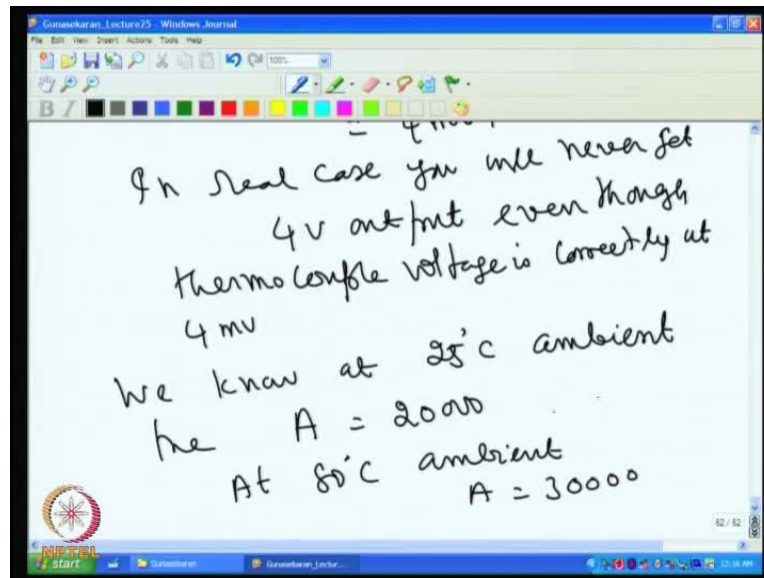 Gunasekaran_Lecture25 - Windows Journal
File Edit View Insert Actions Tools Help
100%
B I
In real case you will never get
4V output even though
thermocouple voltage is correctly at
4 mV
We know at 25°C ambient
the A = 20000
At 80°C ambient
A = 30000
62 / 62
NPTEL
start Gunasekaran Gunasekaran_Lectur... 12:18 AM